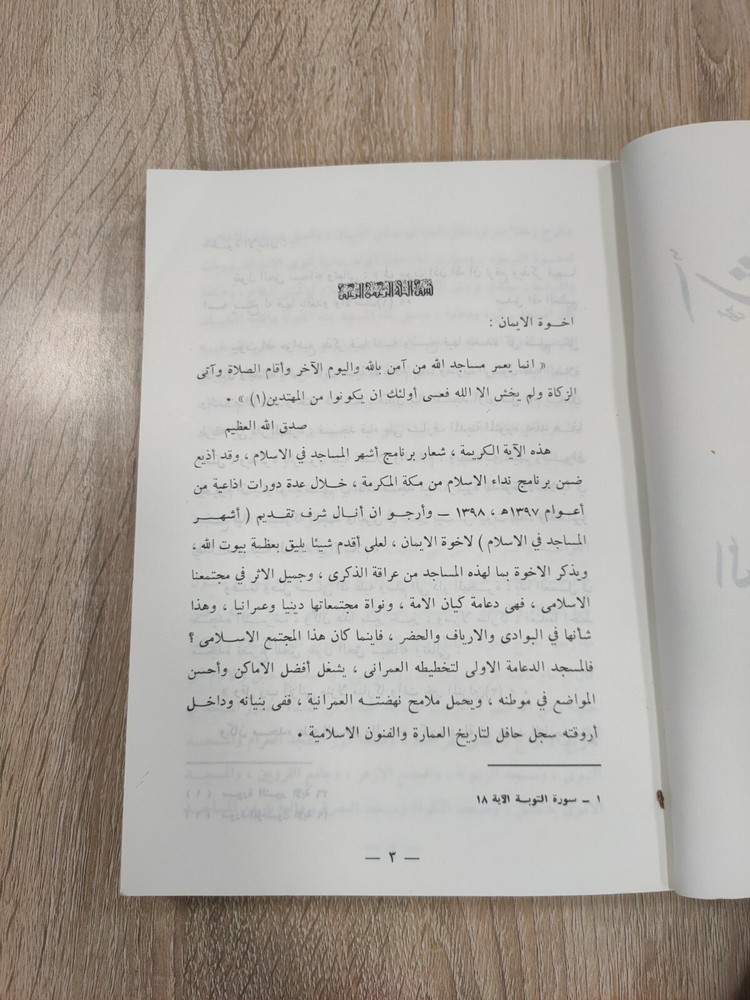 بسم الله الرحمن الرحيم
اخوة الايمان :
« انما يعمر مساجد الله من آمن بالله واليوم الآخر وأقام الصلاة وآتى
الزكاة ولم يخش إلا الله فعسى أولئك ان يكونوا من المهتدين(١) » ٠
صدق الله العظيم
هذه الآية الكريمة ، شعار برنامج أشهر المساجد في الاسلام ، وقد أذيع
ضمن برنامج نداء الاسلام من مكة المكرمة ، خلال عدة دورات اذاعية من
أعوام ١٣٩٧هـ ، ١٣٩٨ ــ وأرجو ان أنال شرف تقديم ( أشهر
المساجد في الاسلام ) لاخوة الايمان ، لعلى أقدم شيئا يليق بعظمة بيوت الله ،
ويذكر الاخوة بما لهذه المساجد من عراقة الذكرى ، وجميل الاثر في مجتمعنا
الاسلامى ، فهى دعامة كيان الامة ، ونواة مجتمعاتها دينيا وعمرانيا ، وهذا
شأنها في البوادى والارياف والحضر ، فاينما كان هذا المجتمع الاسلامى ؟
فالمسجد الدعامة الاولى لتخطيطه العمرانى ، يشغل أفضل الاماكن وأحسن
المواضع في موطنه ، ويحمل ملامح نهضته العمرانية ، ففى بنيانه وداخل
أروقته سجل حافل لتاريخ العمارة والفنون الاسلامية ٠
١ ــ سورة التوبة الآية ١٨
— ٣ —